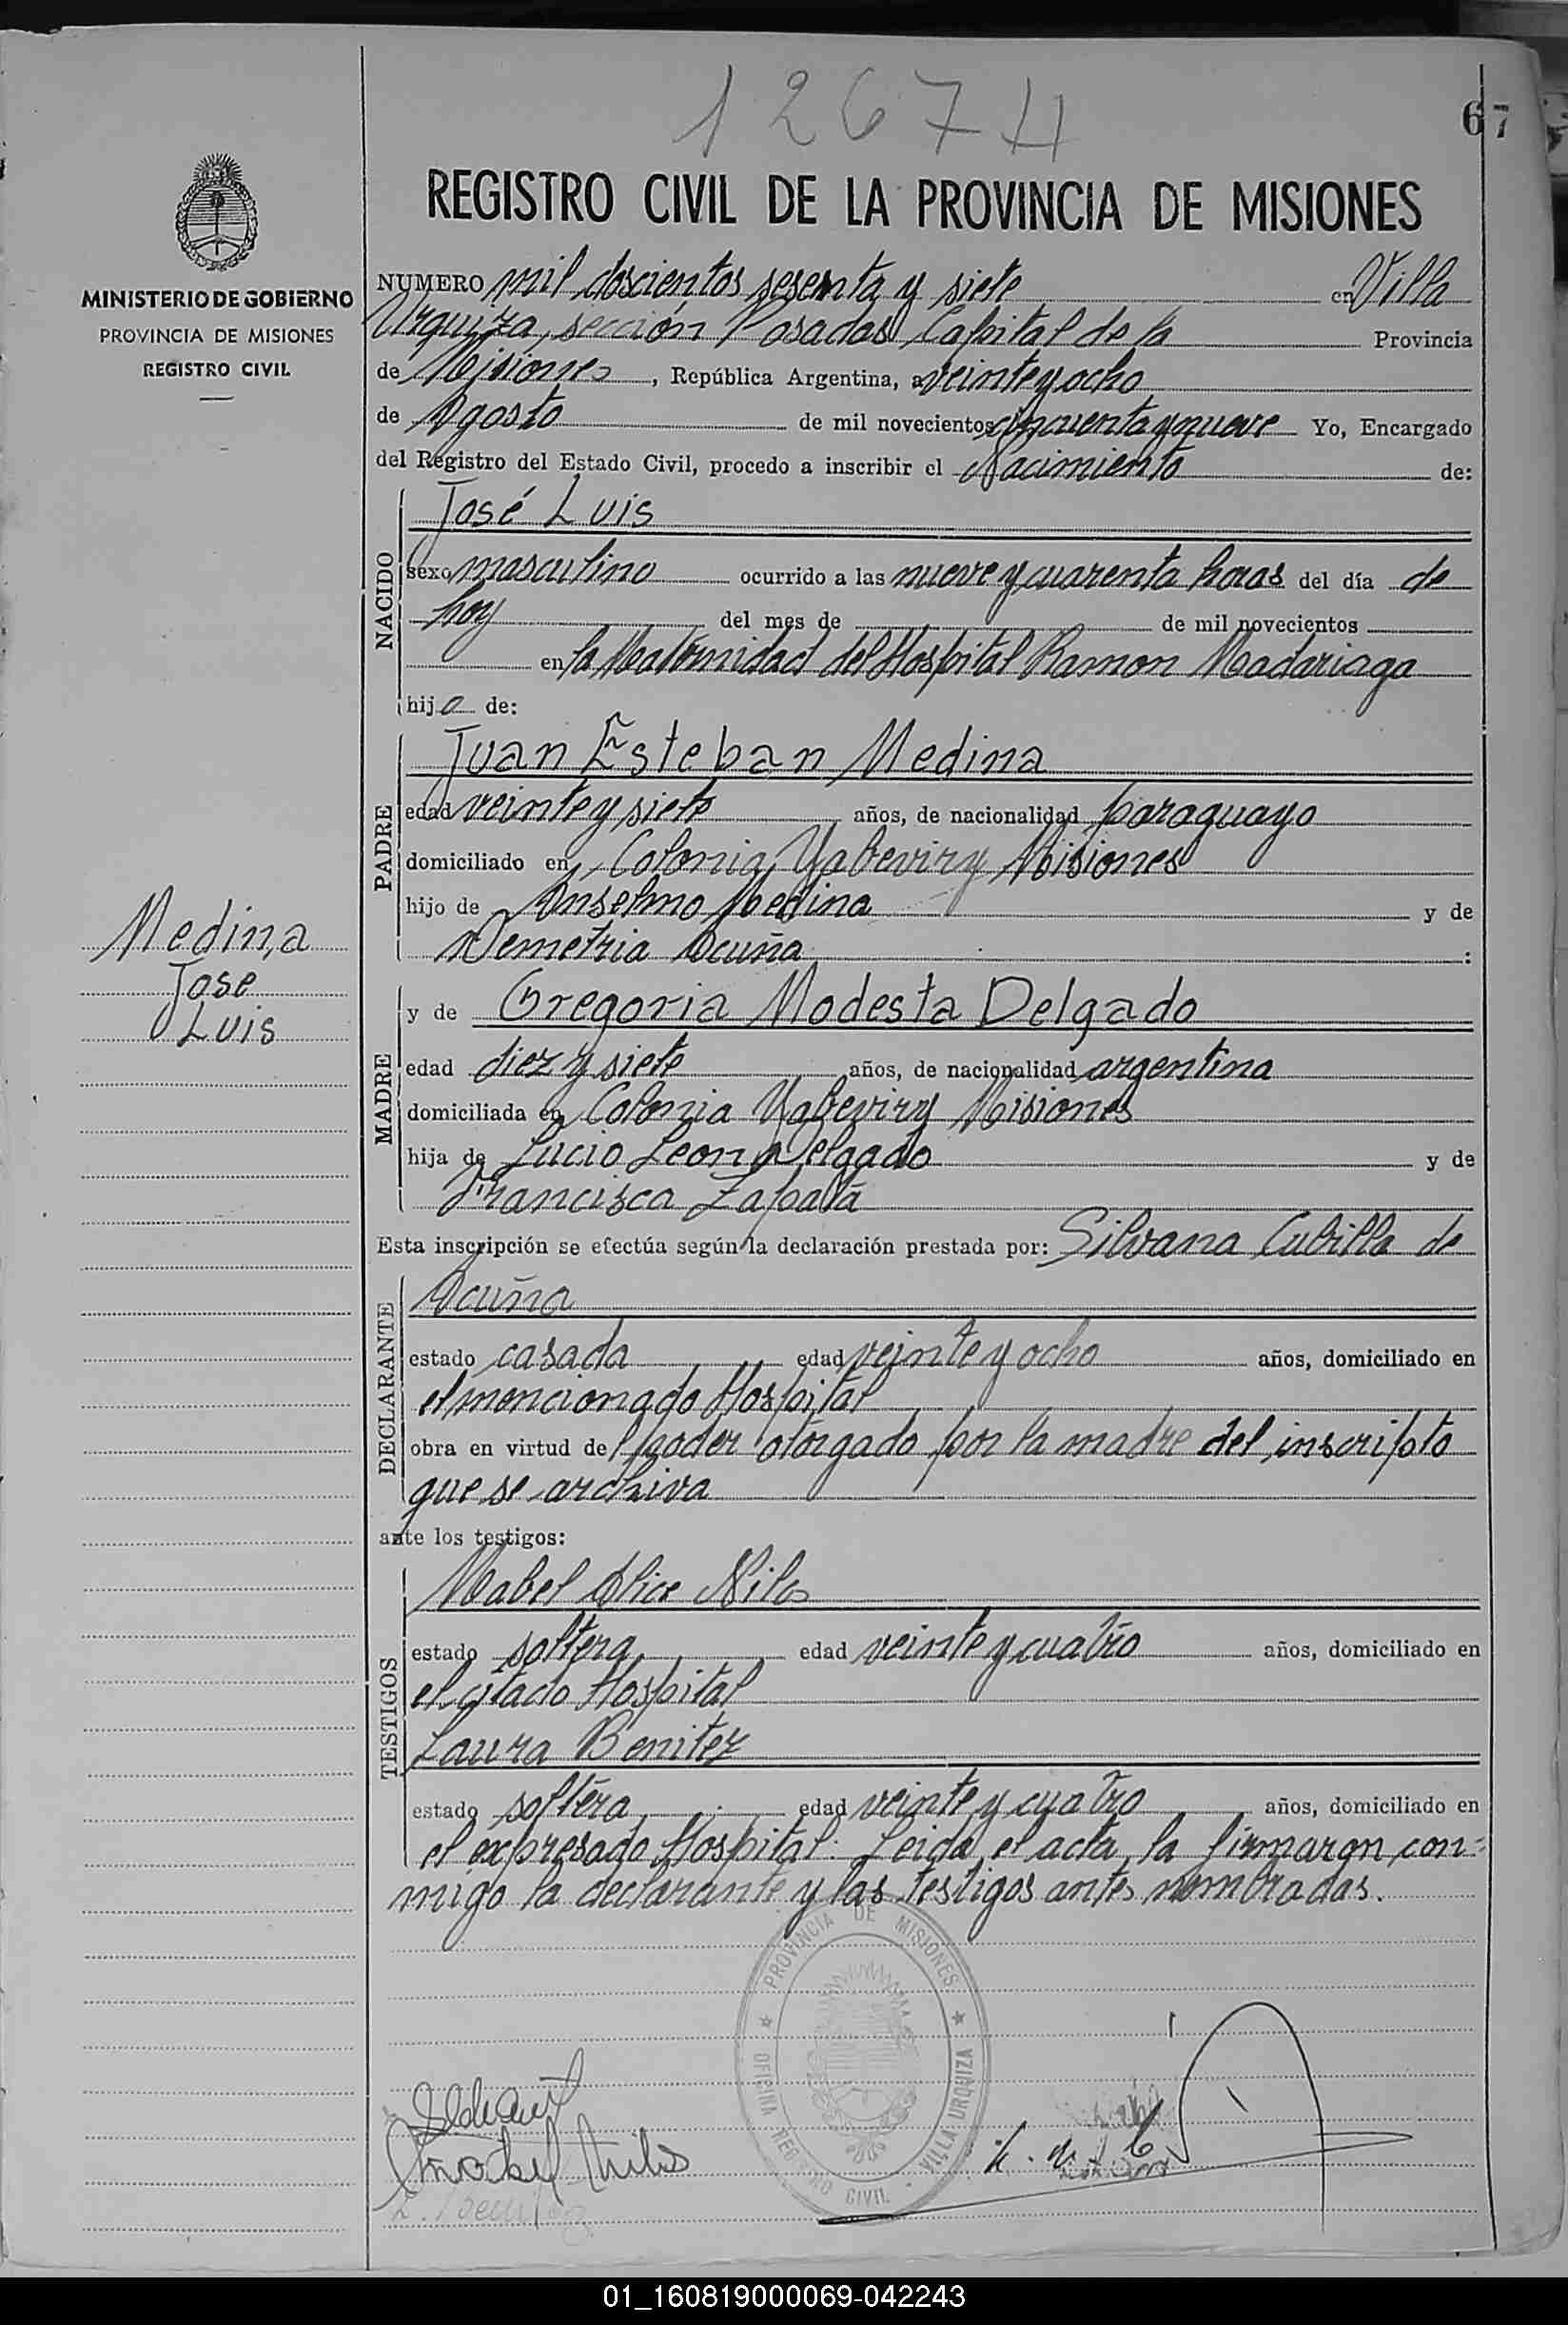 1267 4
67
REGISTRO CIVIL DE LA PROVINCIA DE MISIONES
MINISTERIO DE GOBIERNO
PROVINCIA DE MISIONES
REGISTRO CIVIL
NUMERO mil doscientos sesenta y siete en Villa
Urquiza, sección Posadas Capital de la Provincia
de Misiones, República Argentina, a veinte y ocho
de Agosto de mil novecientos cincuenta y nueve Yo, Encargado
del Registro del Estado Civil, procedo a inscribir el Nacimiento de:
NACIDO
José Luis
sexo masculino ocurrido a las nueve y cuarenta horas del día de
hoy del mes de de mil novecientos
en la Maternidad del Hospital Ramon Madariaga
hijo de:
PADRE
Juan Esteban Medina
edad veinte y siete años, de nacionalidad paraguayo
domiciliado en Colonia Yabeviry Misiones
hijo de Anselmo Medina y de
Demetria Acuña :
Medina
Jose
Luis
MADRE
y de Gregoria Modesta Delgado
edad diez y siete años, de nacionalidad argentina
domiciliada en Colonia Yabeviry Misiones
hija de Lucio Leon Delgado y de
Francisca Zapata
Esta inscripción se efectúa según la declaración prestada por: Silvana Cubilla de
DECLARANTE
Acuña
estado casada edad veinte y ocho años, domiciliado en
el mencionado Hospital
obra en virtud del poder otorgado por la madre del inscripto
que se archiva
ante los testigos:
TESTIGOS
Mabel Alice Nilos
estado soltera edad veinte y cuatro años, domiciliado en
el citado Hospital
Laura Benitez
estado soltera edad veinte y cuatro años, domiciliado en
el expresado Hospital. Leida el acta, la firmaron con=
migo la declarante y las testigos antes nombradas.
PROVINCIA DE MISIONES
OFICINA REGISTRO CIVIL VILLA URQUIZA
01_160819000069-042243